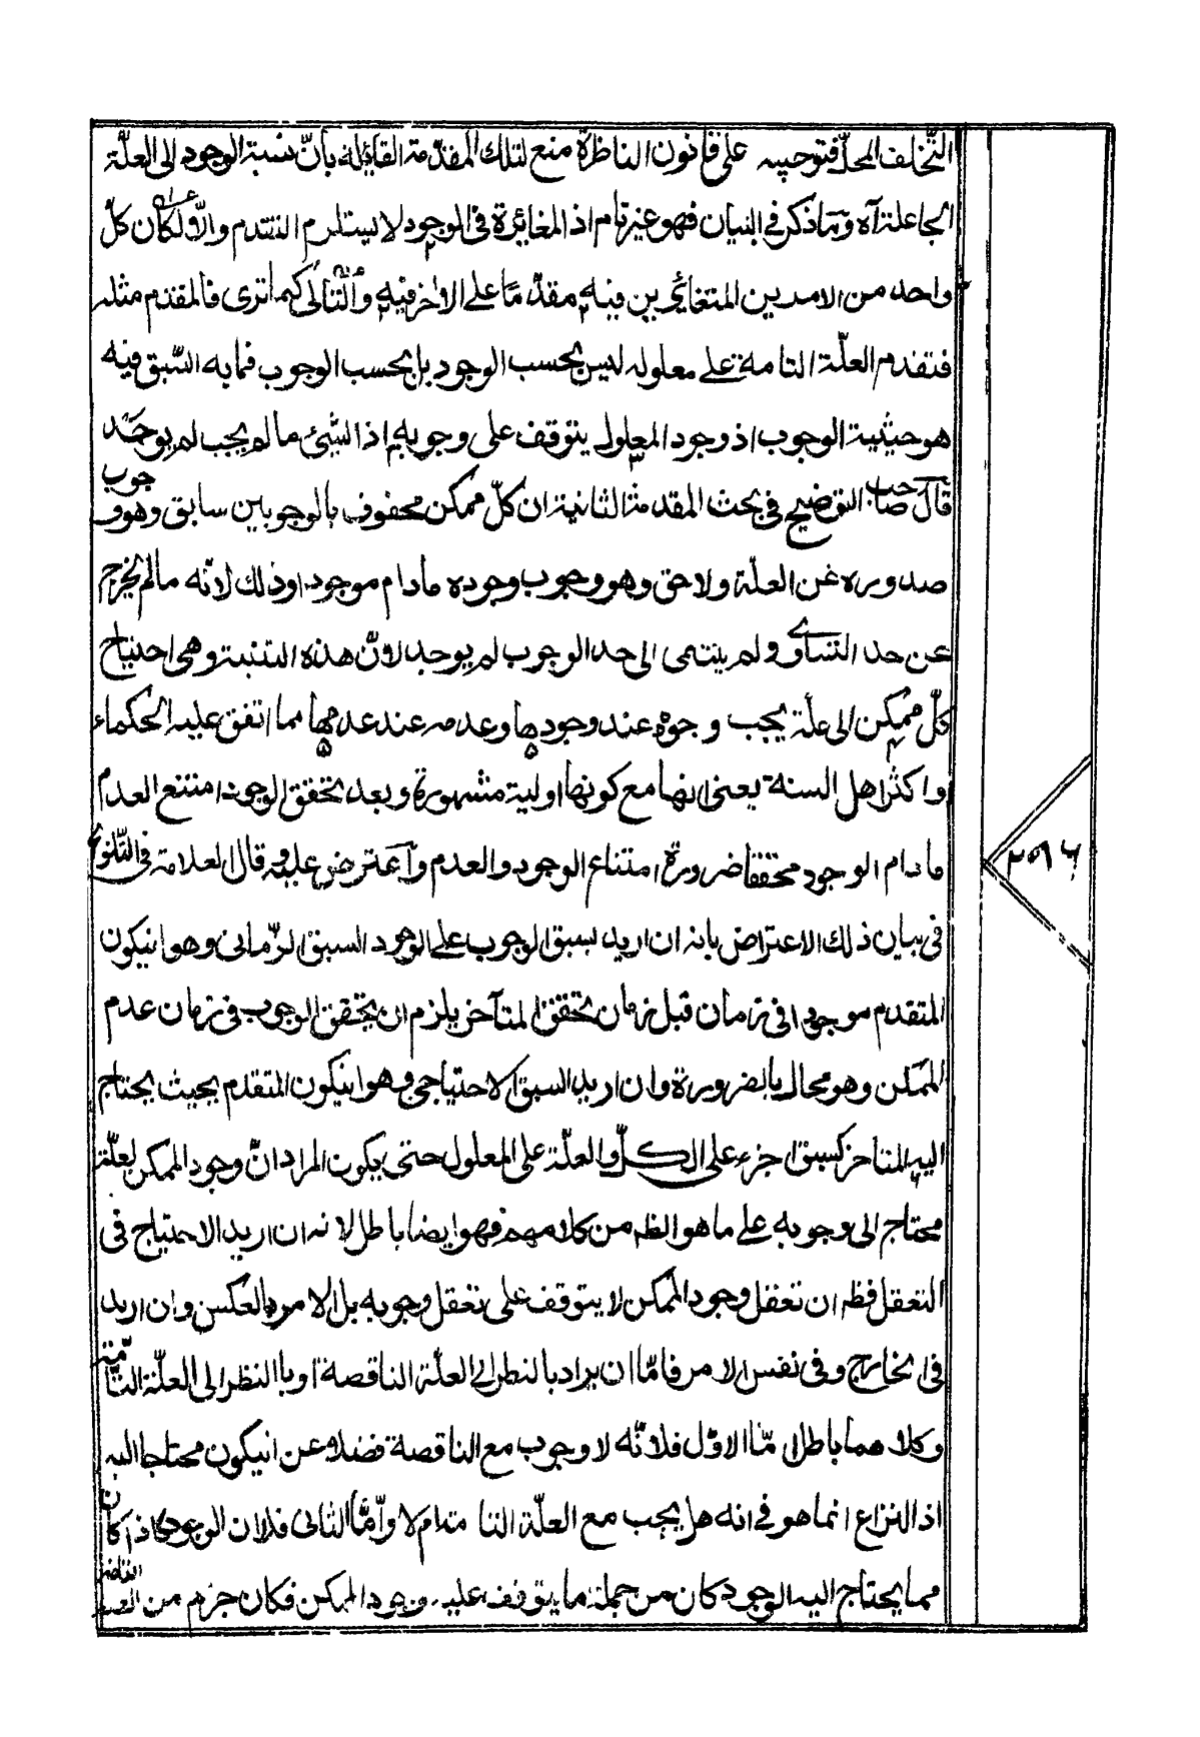 التخلف المحل فتوجيهه على قانون المناظرة منع لتلك المقدمة القايلة بأنّ نسبة الوجود الى العلّة
الجاعلة آه وما ذكر في البيان فهو غير تام اذ المغائرة في الوجود لا يستلزم التقدم والّا لكان كلّ
واحد من الامرين المتغائرين فيه مقدّما على الاخر فيه والتالى كما ترى فالمقدم مثله
فتقدم العلّة التامة على معلوله ليس بحسب الوجود بل بحسب الوجوب فما به السّبق فيه
هو حيثية الوجوب اذ وجود المعلول يتوقف على وجوبه اذ الشيئ ما لم يجب لم يوجد
قال صاحب التوضيح في بحث المقدمة الثانية ان كلّ ممكن محفوف بالوجوبين سابق وهو وجوب
صدوره عن العلّة ولاحق وهو وجوب وجوده مادام موجودا وذلك لانّه مالم يخرج
عن حد التساوى ولم ينتهى الى حد الوجوب لم يوجد لانّ هذه التنبية وهى احتياج
كلّ ممكن الى علّة يجب وجوده عند وجودها وعدمه عند عدمها مما اتفق عليه الحكماء
واكثر اهل السنة يعنى انها مع كونها اولية مشهورة وبعد تحقق الوجود امتنع العدم
مادام الوجود محققا ضرورة امتناع الوجود والعدم واعترض عليه قال العلامة فى التلويح
فى بيان ذلك الاعتراض بانه ان اريد بسبق الوجوب على الوجود السبق الزمانى وهو انيكون
المتقدم موجودا فى زمان قبل زمان تحقق المتأخر يلزم ان يتحقق الوجوب فى زمان عدم
الممكن وهو محال بالضرورة وان اريد السبق الاحتياجى وهو انيكون المتقدم بحيث يحتاج
اليه المتاخر كسبق الجزء على الكلّ والعلّة على المعلول حتى يكون المراد انّ وجود الممكن لعلّة
محتاج الى وجوبه على ما هو الظه من كلامهم فهو ايضا باطل لانه ان اريد الاحتياج فى
التعقل فظه ان تعقل وجود الممكن لا يتوقف على تعقل وجوبه بل الامر بالعكس وان اريد
فى الخارج وفى نفس الامر فامّا ان يراد بالنظر الى العلّة الناقصة او بالنظر الى العلّة التامّة
وكلاهما باطل امّا الاوّل فلانّه لا وجوب مع الناقصة فضلا عن انيكون محتاجا اليه
اذ النزاع انما هو فى انه هل يجب مع العلّة التامة ام لا وامّا الثانى فلان الوجوب اذا كان
مما يحتاج اليه الوجود كان من جملة ما يتوقف عليه وجود الممكن فكان جزء من العلة